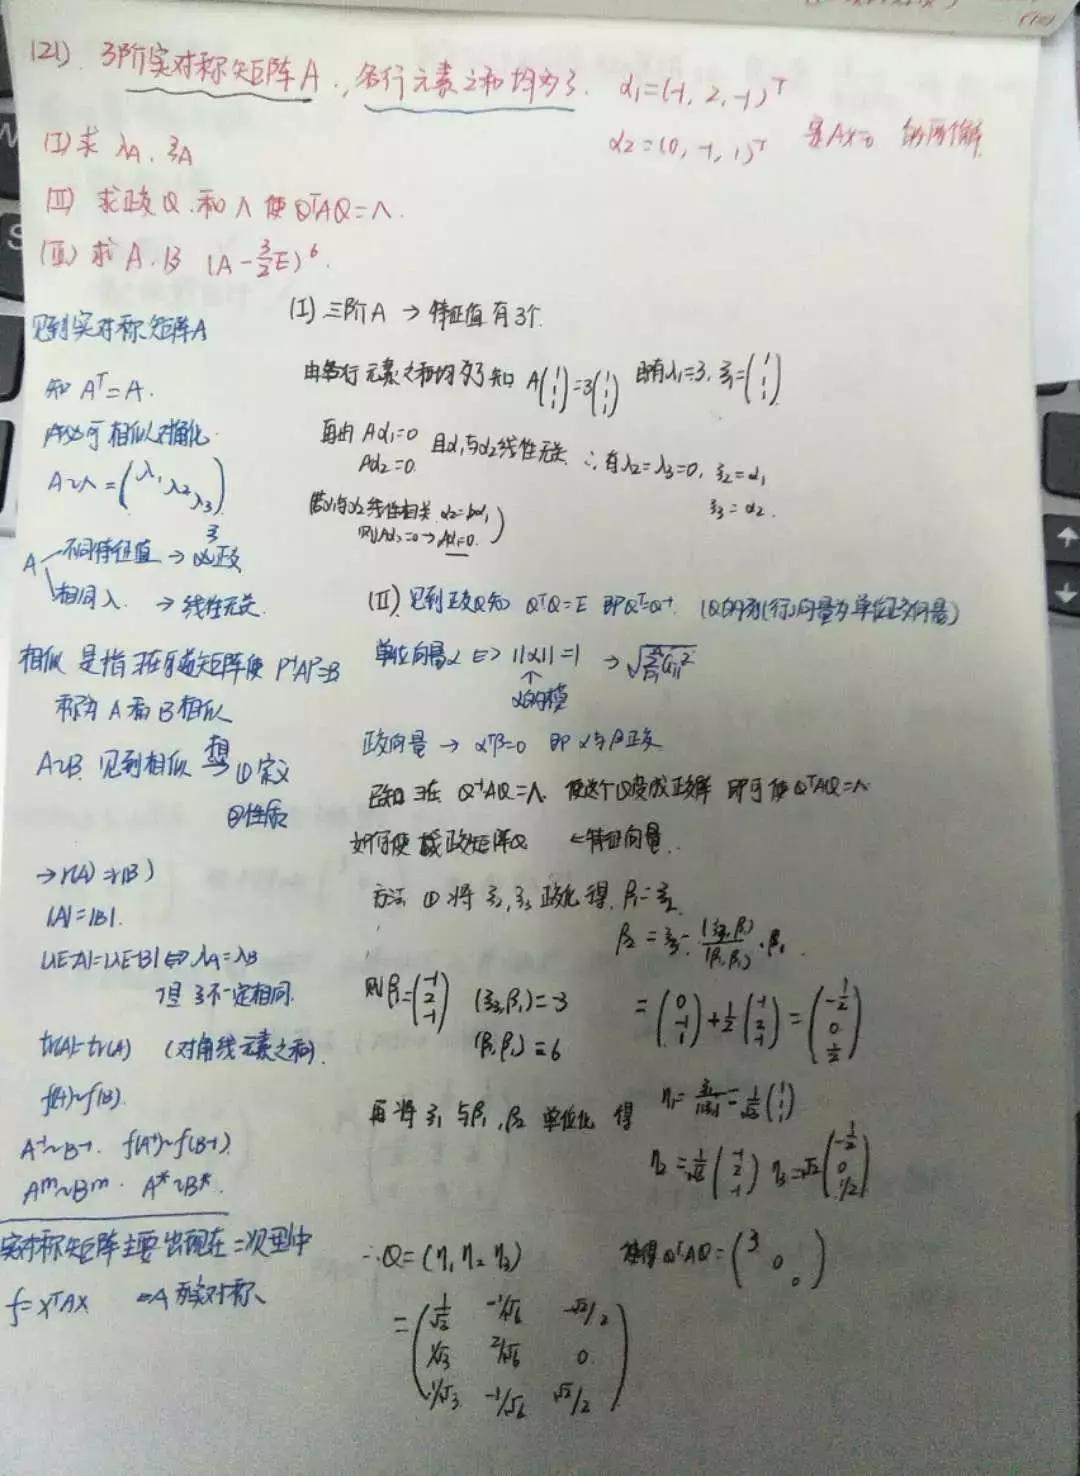 (21). 3阶实对称矩阵A, 各行元素之和均为3. α₁=(-1, 2, -1)ᵀ
α₂=(0, -1, 1)ᵀ 是Ax=0 的两个解
(I) 求 λA. ξA
(II) 求正交Q. 和 Λ 使 QᵀAQ=Λ.
(III) 求 A. 及 (A-3/2E)⁶.
见到实对称矩阵A
知 Aᵀ=A.
A必可相似对角化
A~Λ=(λ₁ λ₂ λ₃)
ξ
A 不同特征值 → 必正交
相同λ. → 线性无关.
相似 是指 存在可逆矩阵使 P⁻¹AP=B
称为 A 和 B 相似
A~B. 见到相似 想 ①定义
②性质
→ r(A)=r(B)
|A|=|B|.
|λE-A|=|λE-B| ⇔ λA=λB
但 ξ不一定相同.
tr(A)=tr(A) (对角线元素之和).
f(A)~f(B).
A⁻¹~B⁻¹. f(A⁻¹)~f(B⁻¹).
Aᵐ~Bᵐ. A*~B*.
实对称矩阵主要出现在二次型中
f=xᵀAx A为实对称.
(I) 三阶A → 特征值有3个.
由各行元素之和均为3知 A(1 1 1)=3(1 1 1) 即有λ₁=3, ξ₁=(1 1 1)
再由 Aα₁=0 且α₁与α₂线性无关. ∴有λ₂=λ₃=0, ξ₂=α₁
Aα₂=0. ξ₃=α₂.
若α₁与α₂线性相关. α₂=kα₁
则Aα₂=0→Aα₁=0.)
(II). 见到正交Q知 QᵀQ=E 即Qᵀ=Q⁻¹. (Q的列(行)向量为单位正交向量)
单位向量α ⇔ ||α||=1
↑
α的模
正交向量 → αᵀβ=0 即 α与β正交
已知存在 Q⁻¹AQ=Λ. 使这个Q变成正交阵 即可使QᵀAQ=Λ
如何使 成正交矩阵Q ←特征向量.
方法 ①将 ξ₂, ξ₃ 正交化得. β₁=ξ₂.
β₂=ξ₃-(ξ₃,β₁)/(β₁,β₁)·β₁.
则β₁=(-1 2 -1) (ξ₃,β₁)=-3 =(0 -1 1)+1/2(-1 2 -1)=(-1/2 0 1/2)
(β₁,β₁)=6
再将 ξ₁ 与β₁, β₂ 单位化 得 η₁=ξ₁/||ξ₁||=1/√3(1 1 1)
η₂=1/√6(-1 2 -1) η₃=√2(-1/2 0 1/2)
∴Q=(η₁ η₂ η₃) 使得QᵀAQ=(3 0 0)
=(1/√3 -1/√6 -√2/2
1/√3 2/√6 0
1/√3 -1/√6 √2/2)